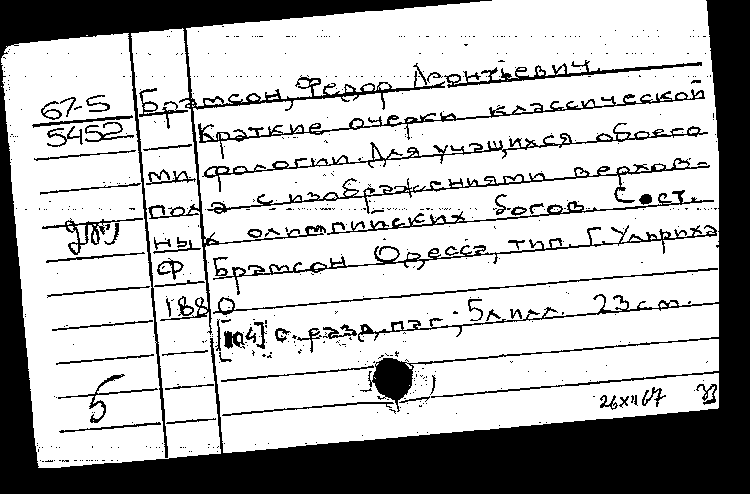 67-5
5452
Брамсон, Федор Леонтьевич.
Краткие очерки классической
мифологии. Для учащихся обоего
пола с изображениями верхов-
ных олимпийских богов. Сост.
Ф. Брамсон Одесса, тип. Г. Ульриха
1880
[104] с. разд. паг.; 5 л. илл. 23 см.
5
26 XII 67